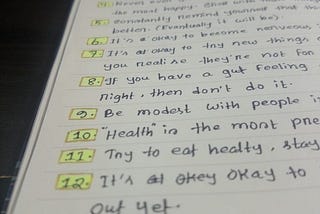 4. Never
the most happy.
5. Constantly remind yourself that
better. (Eventually it will be).
6. It's okay to become nervous,
7. It's at okay to try new things,
you realise they're not for
8. If you have a gut feeling
right, then don't do it.
9. Be modest with people
10. "Health" is the most pre
11. Try to eat healty, stay
12. It's at okey okay to
out yet.